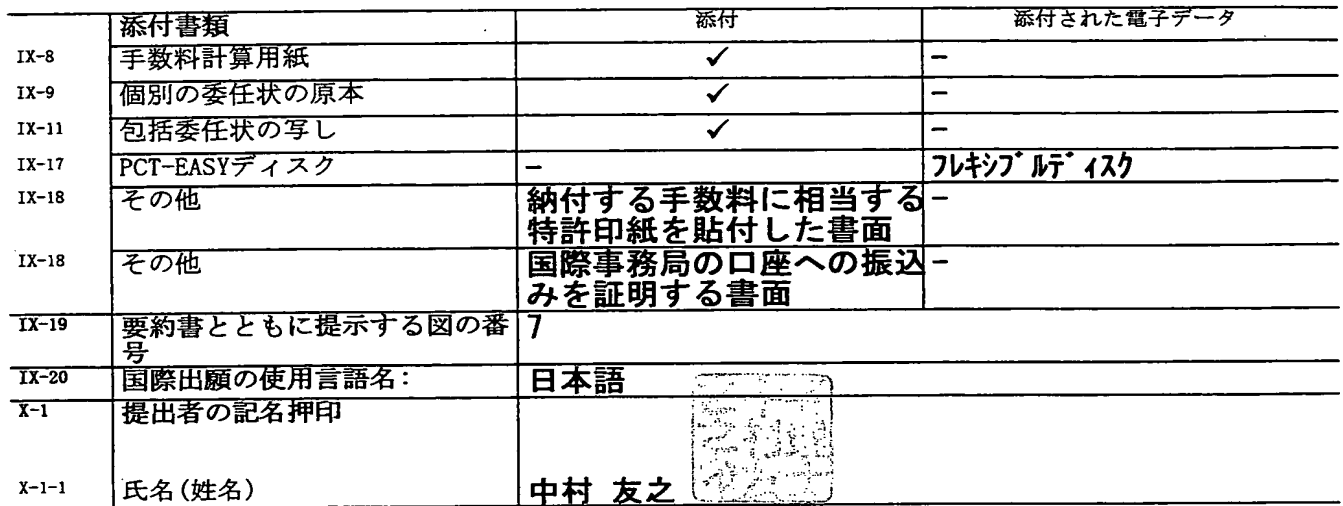 添付書類 添付 添付された電子データ
IX-8 手数料計算用紙 ✓ −
IX-9 個別の委任状の原本 ✓ −
IX-11 包括委任状の写し ✓ −
IX-17 PCT-EASYディスク − フレキシブルディスク
IX-18 その他 納付する手数料に相当する −
特許印紙を貼付した書面
IX-18 その他 国際事務局の口座への振込 −
みを証明する書面
IX-19 要約書とともに提示する図の番 7
号
IX-20 国際出願の使用言語名: 日本語
X-1 提出者の記名押印
X-1-1 氏名(姓名) 中村 友之